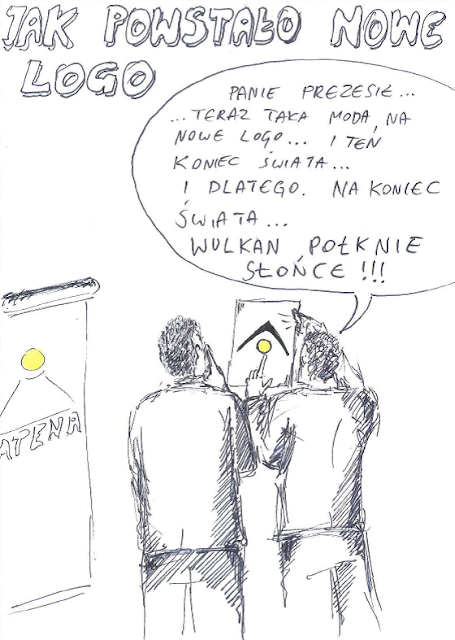 JAK POWSTAŁO NOWE
LOGO
PANIE PREZESIE...
...TERAZ TAKA MODA NA
NOWE LOGO... I TEŃ
KONIEC ŚWIATA...
I DLATEGO. NA KONIEC
ŚWIATA...
WULKAN POŁKNIE
SŁOŃCE !!!
ATENA